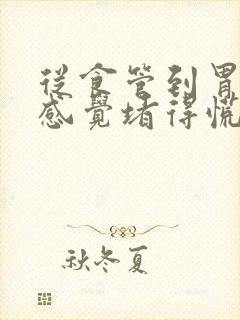 從食管到胃
感覺堵得慌
秋冬夏